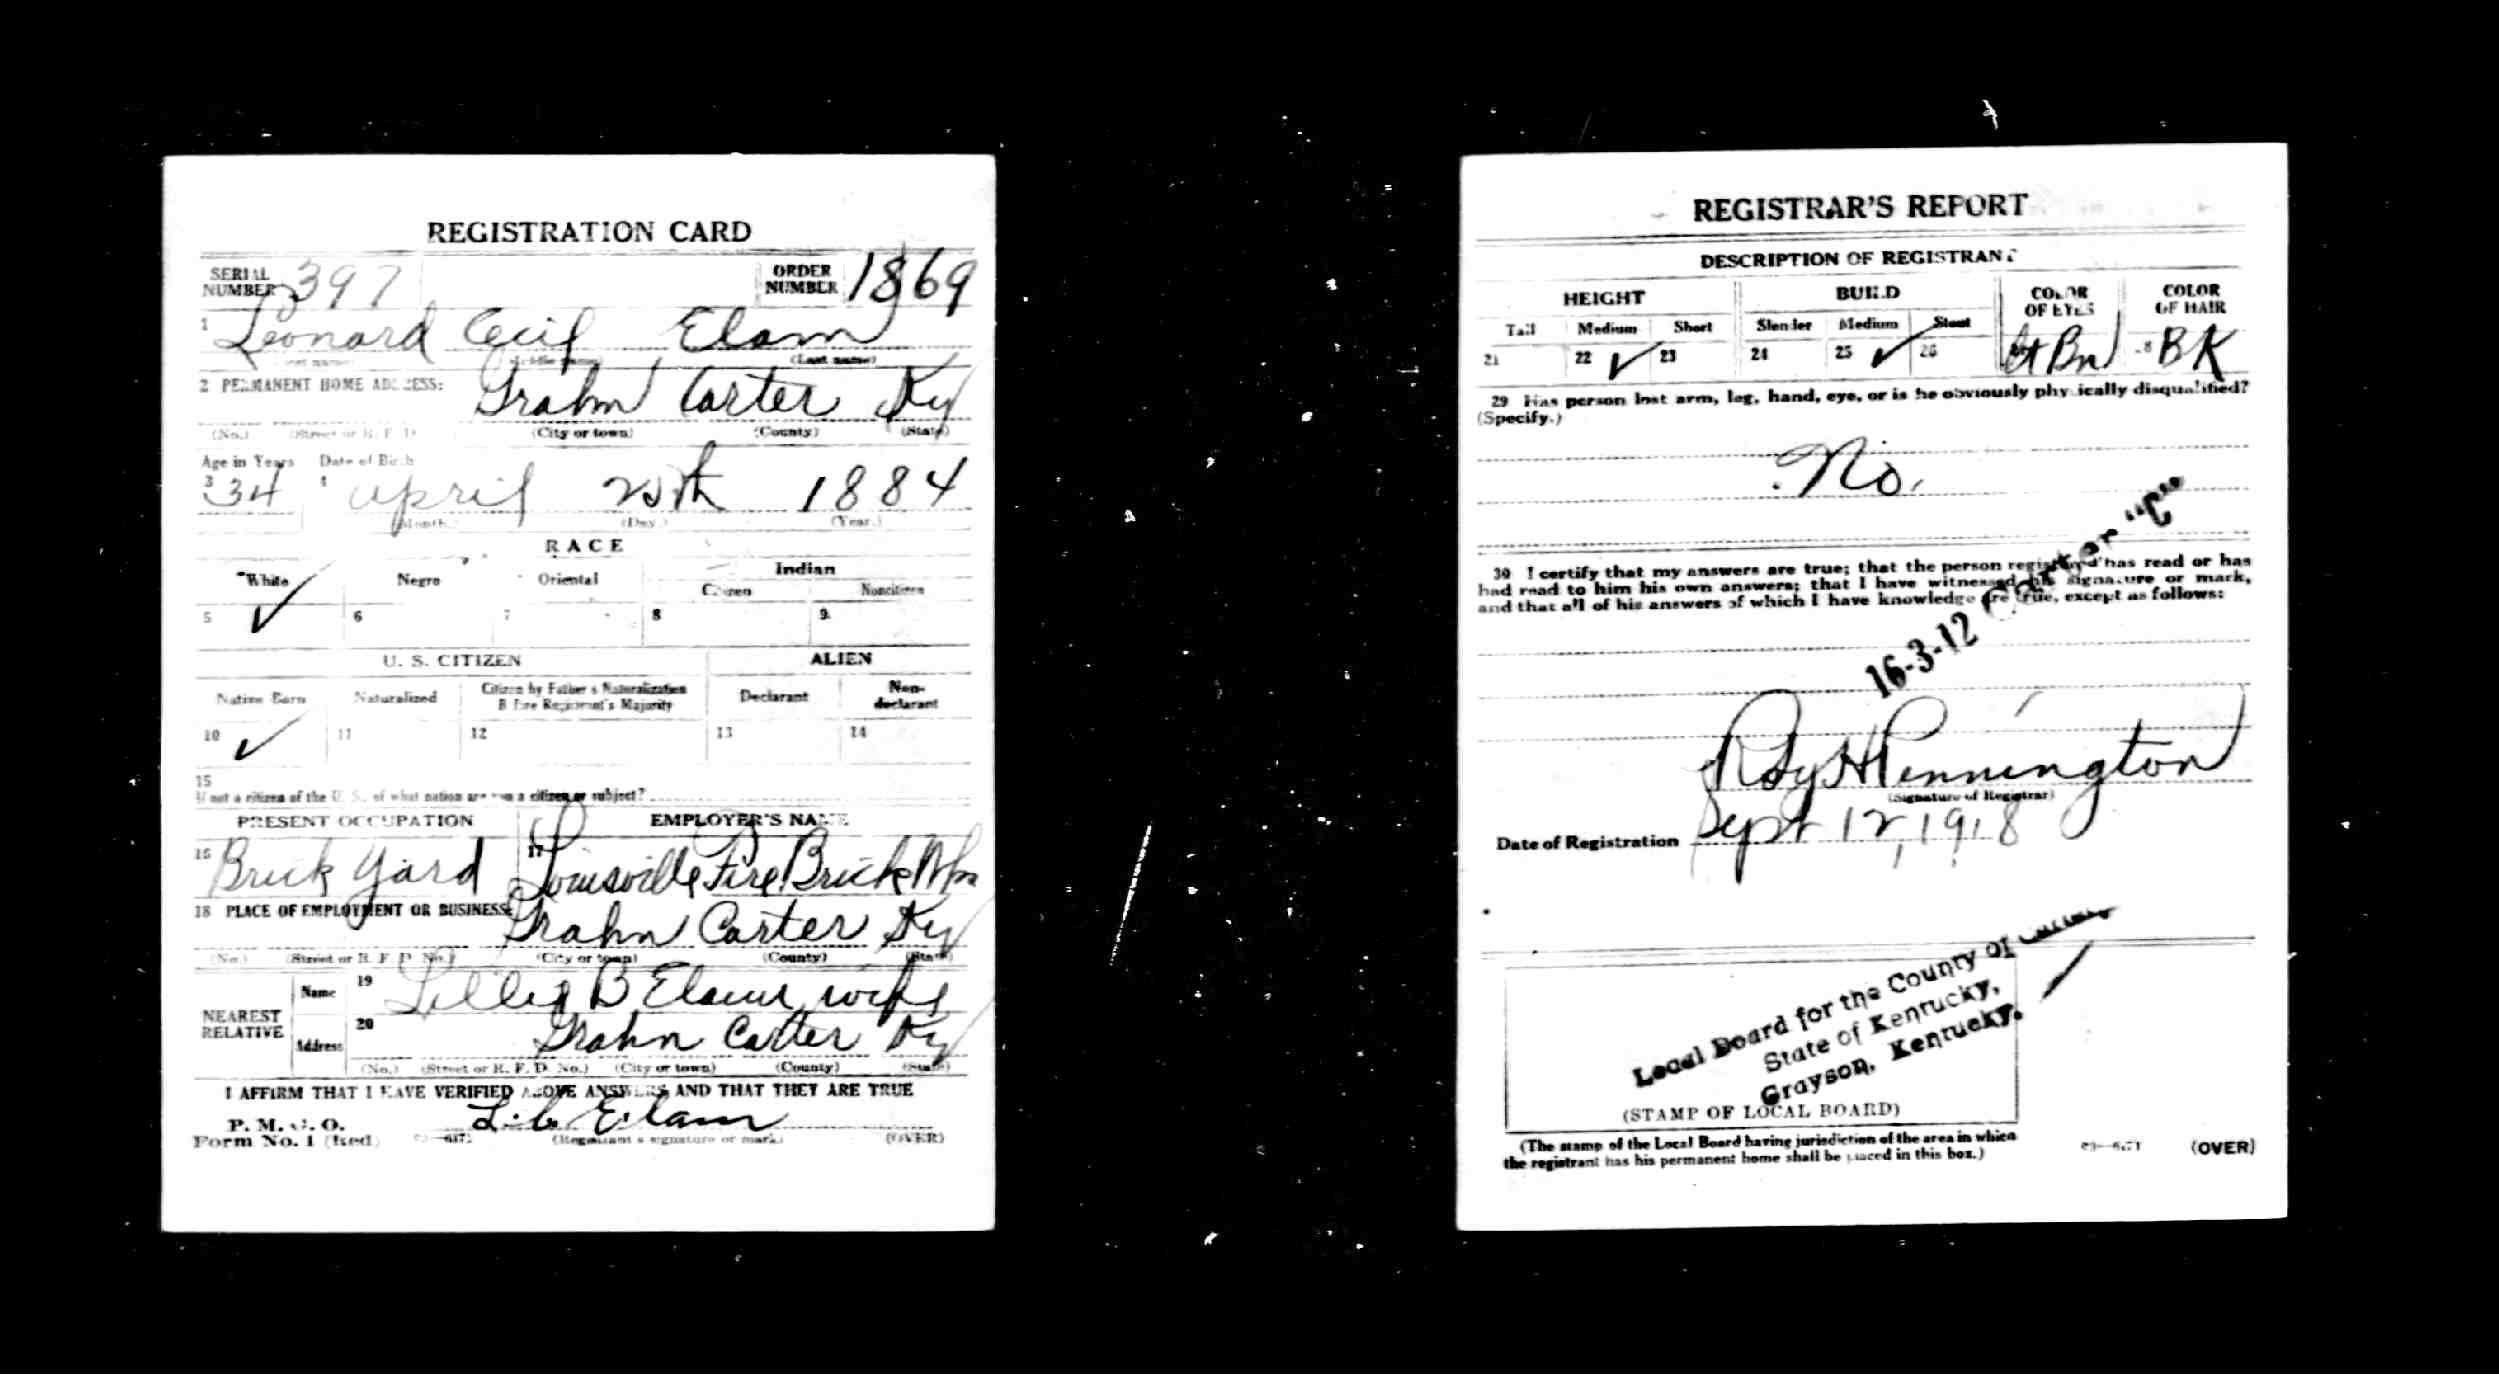 REGISTRATION CARD
SERIAL NUMBER 397 ORDER NUMBER 1869
1 Leonard Cecil Elam
(Last name)
2 PERMANENT HOME ADDRESS: Grahn Carter Ky
(No.) (Street or R. F. D. (City or town) (County) (State)
Age in Years Date of Birth
3 34 4 April 25th 1884
(Month.) (Day.) (Year.)
RACE
White Negro Oriental Indian
Citizen Noncitizen
5 ✓ 6 7 8 9
U. S. CITIZEN ALIEN
Native Born Naturalized Citizen by Father's Naturalization Before Registrant's Majority Declarant Non-declarant
10 ✓ 11 12 13 14
15
If not a citizen of the U. S., of what nation are you a citizen or subject?
PRESENT OCCUPATION EMPLOYER'S NAME
16 Brick Yard 17 Louisville Fire Brick
18 PLACE OF EMPLOYMENT OR BUSINESS: Grahn Carter Ky
(No.) (Street or R. F. D. No.) (City or town) (County) (State)
NEAREST RELATIVE
Name 19 Lillie B Elam wife
Address 20 Grahn Carter Ky
(No.) (Street or R. F. D. No.) (City or town) (County) (State)
I AFFIRM THAT I HAVE VERIFIED ABOVE ANSWERS AND THAT THEY ARE TRUE
P. M. G. O.
Form No. 1 (Red) L. C. Elam
(Registrant's signature or mark) (OVER)
REGISTRAR'S REPORT
DESCRIPTION OF REGISTRANT
HEIGHT BUILD COLOR OF EYES COLOR OF HAIR
Tall Medium Short Slender Medium Stout
21 22 ✓ 23 24 25 ✓ 26 Lt Bn BK
29 Has person lost arm, leg, hand, eye, or is he obviously physically disqualified?
(Specify.)
No.
30 I certify that my answers are true; that the person registered has read or has
had read to him his own answers; that I have witnessed his signature or mark,
and that all of his answers of which I have knowledge are true, except as follows:
16-3-12 Carter "C"
Roy H Pennington
(Signature of Registrar)
Date of Registration Sept 12, 1918
Local Board for the County of Carter,
State of Kentucky,
Grayson, Kentucky.
(STAMP OF LOCAL BOARD)
(The stamp of the Local Board having jurisdiction of the area in which
the registrant has his permanent home shall be placed in this box.)
(OVER)